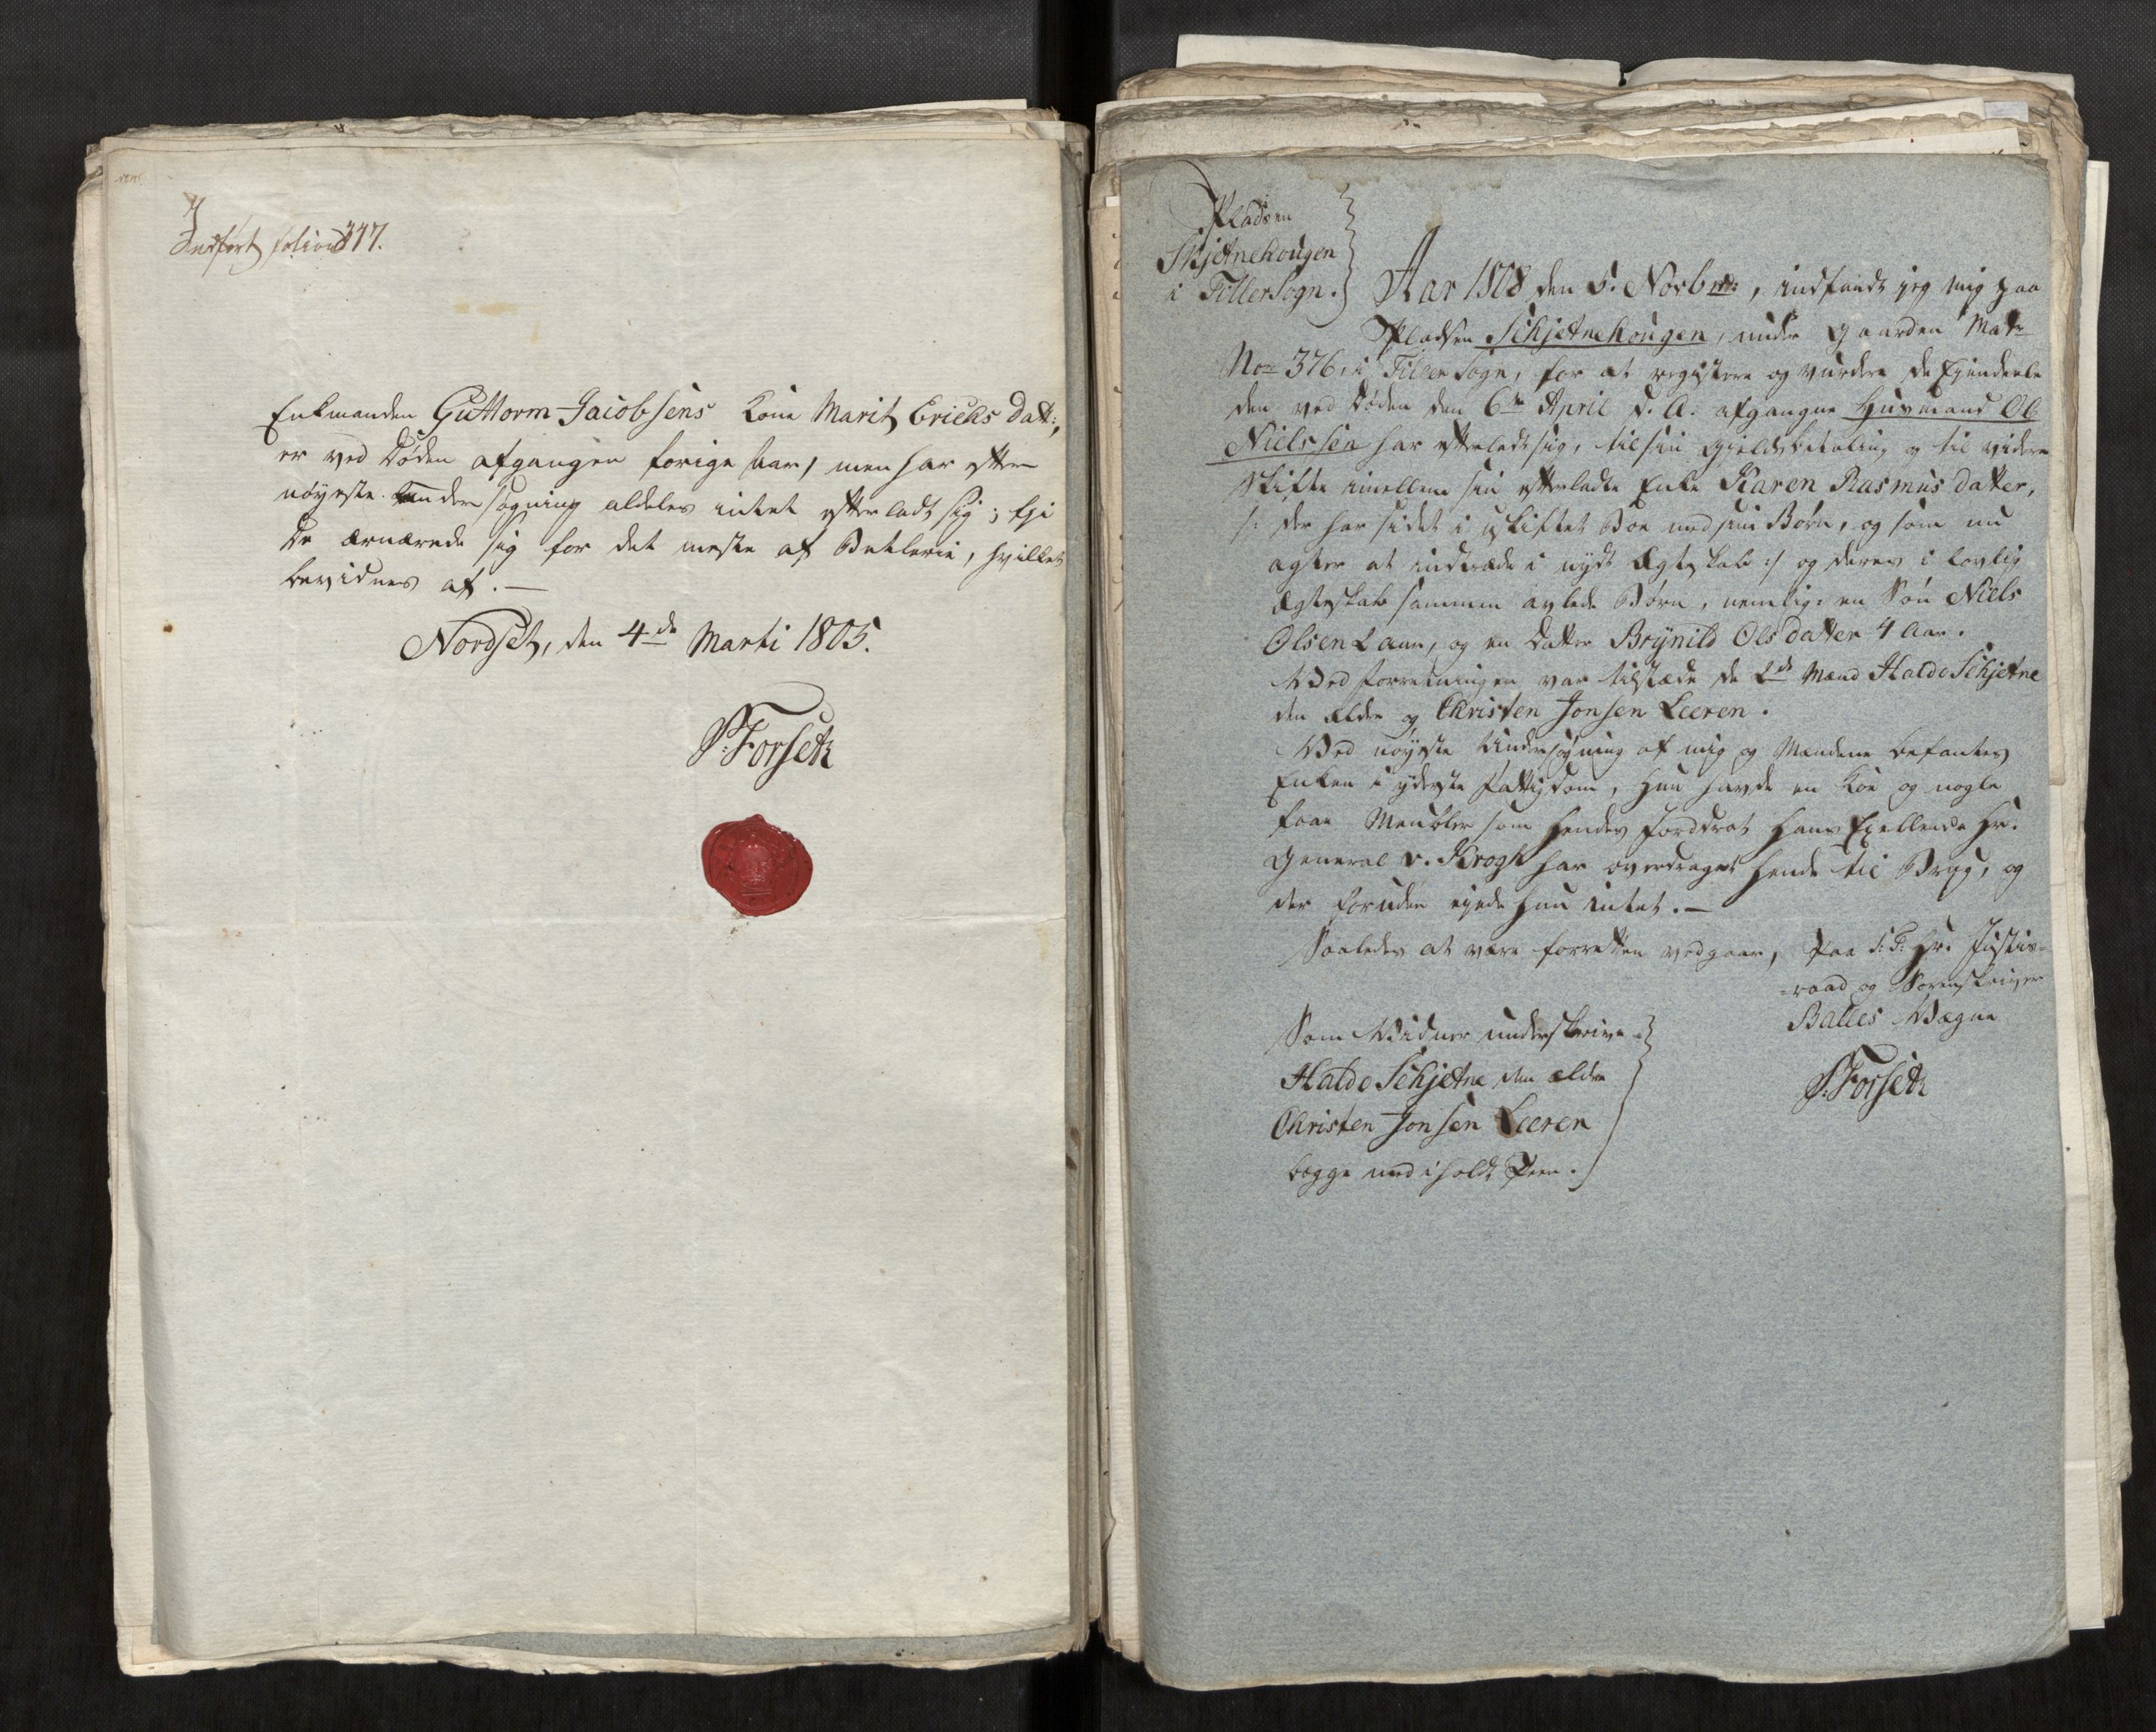 Indført folio 377.
Enkmanden Guttorm Jacobsens Kone Marit Ericksdatt:,
er ved Døden afgangen forige Aar, men har efter
nøyeste Undersøgning aldeles intet efterladt sig; thi
De ærnærede sig for det meste af Betlerie, hvilket
bevidnes af. —
Nordset, den 4de Marti 1805.
P: Forseth
Pladsen
Skjetnehougen
i Tiller Sogn.
Aar 1808 den 5. Novbr:, indfandt jeg mig paa
Pladsen Schjetnehougen, under Gaarden Matr
No 376, i Tiller Sogn, for at registere og vurdere de Ejendeele
den ved Døden den 6te April d. A. afgangne Husmand Ole
Nielssen har efterladt sig, til sin Gjelds betaling og til videre
Skifte imellem sin efterladte Enke Karen Rasmusdatter,
/: der har sidet i uskiftet Boe med sine Børn, og som nu
agter at indtræde i nydt Ægteskab :/ og deres i lovlig
Ægteskab sammen avlede Børn, nemlig: en Søn Niels
Olsen 2 aar, og en Datter Brynild Olsdatter 4 Aar.
Ved forretningen var tilstæde de 2de Mænd Haldo Schjetne
den ældre og Christen Jonsen Leeren.
Ved nøyeste Undersøgning af mig og Mændene befantes
Enken i yderste Fattigdom, hun havde en Koe og nogle
faae Meubler som hendes Jorddrot Hans Exellence Hr.
General v. Krogh har overdraget hende til Brug, og
der foruden eyede hun intet. —
Saaledes at være forrettet vedgaar, paa S: T: Hr. Justits-
-raad og Sorenskriver
Balles Vægne
P: Forseth
Som Vidner underskrive
Haldo Schjetne den ældre
Christen Jonsen Leeren
begge med iholdt Pen.